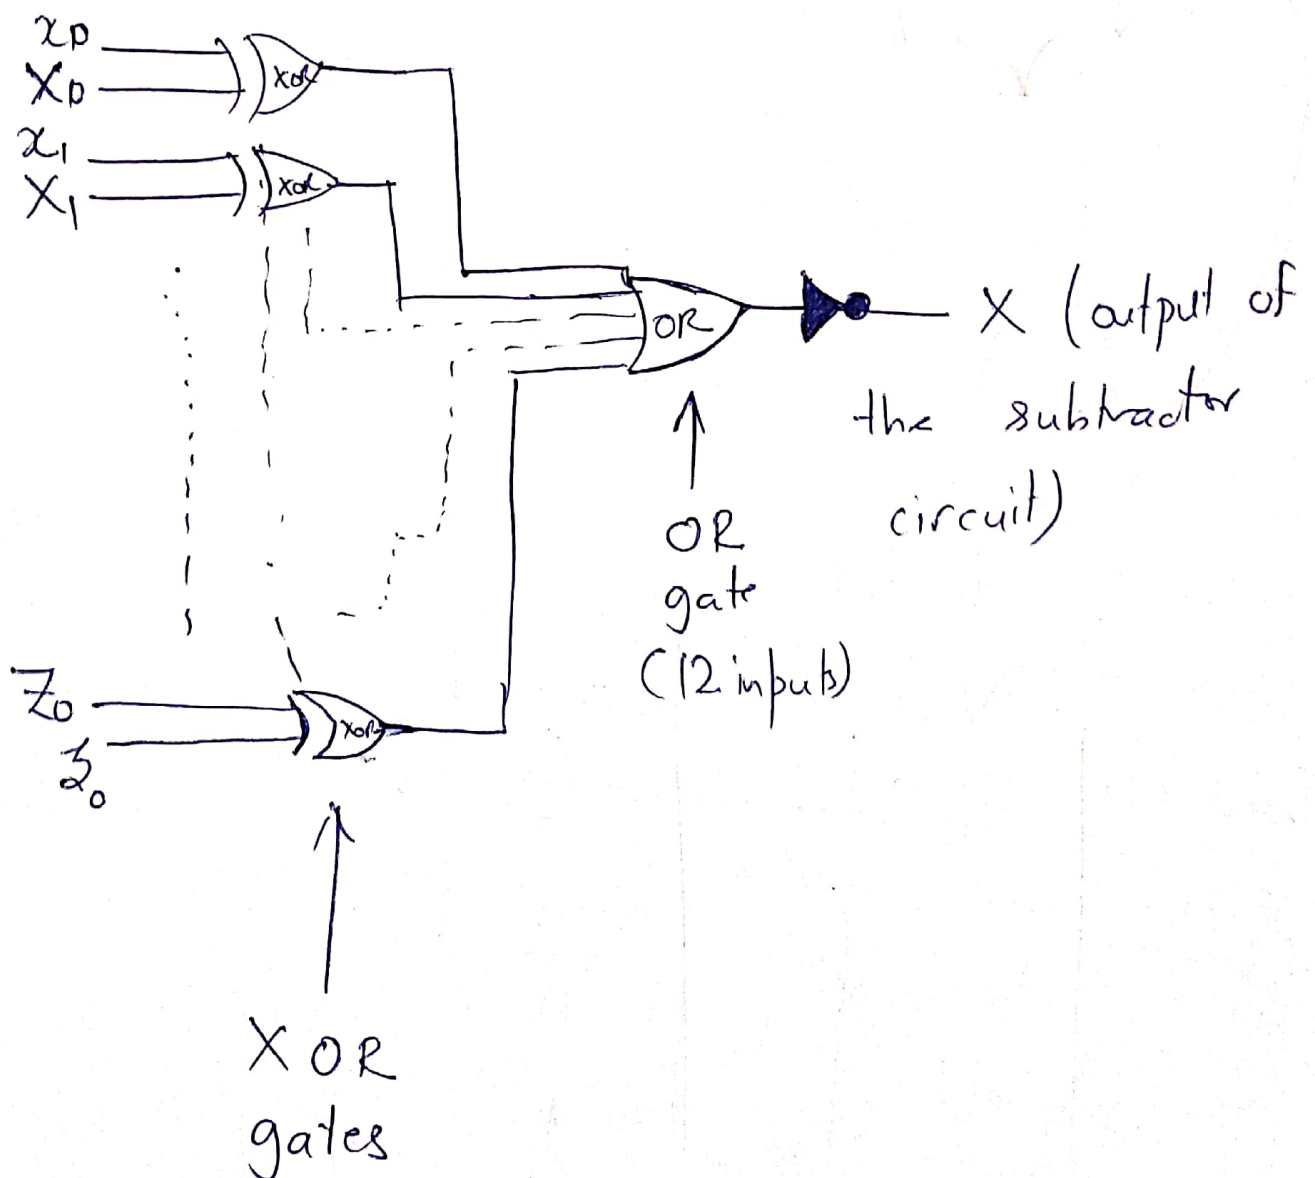 x₀
X₀
XOR
x₁
X₁
XOR
OR
X (output of
the subtractor
circuit)
OR
gate
(12 inputs)
Z₀
z₀
XOR
XOR
gates